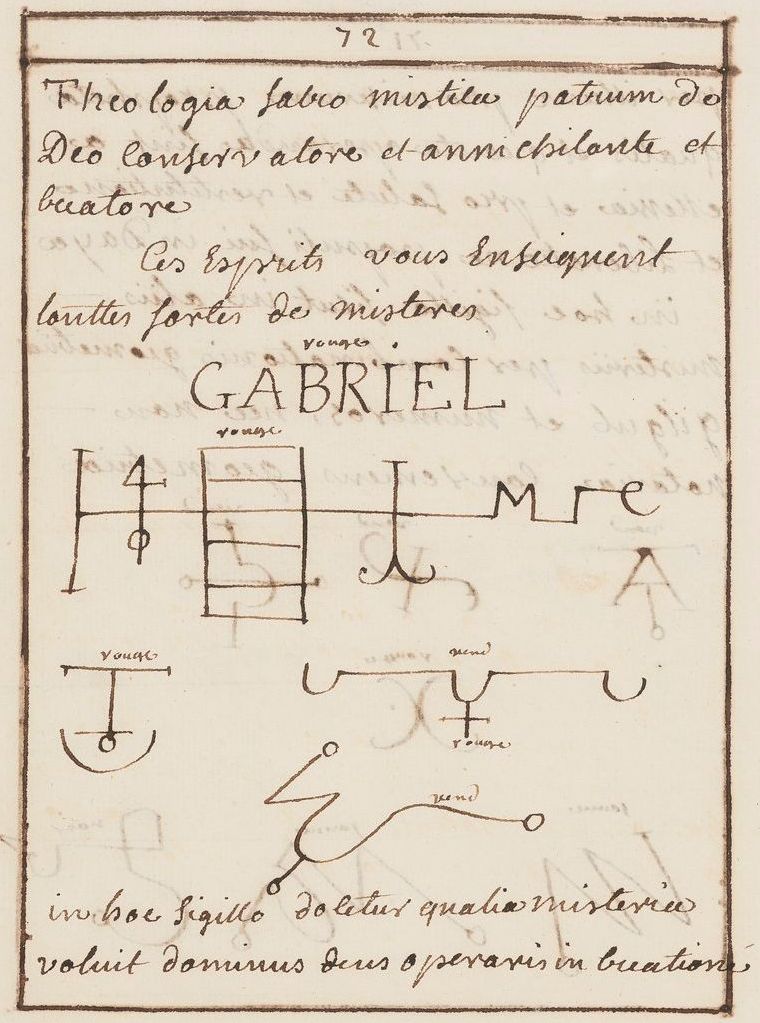 72
Theologia sabio mistica patrum de
Deo Conservatore et annichilante et
creatore
Ces Esprits vous Enseignent
touttes sortes de misteres
rouge
GABRIEL
rouge
rouge
verd
rouge
verd
in hoc Sigillo docetur qualia misteria
voluit dominus deus operaris in creatione